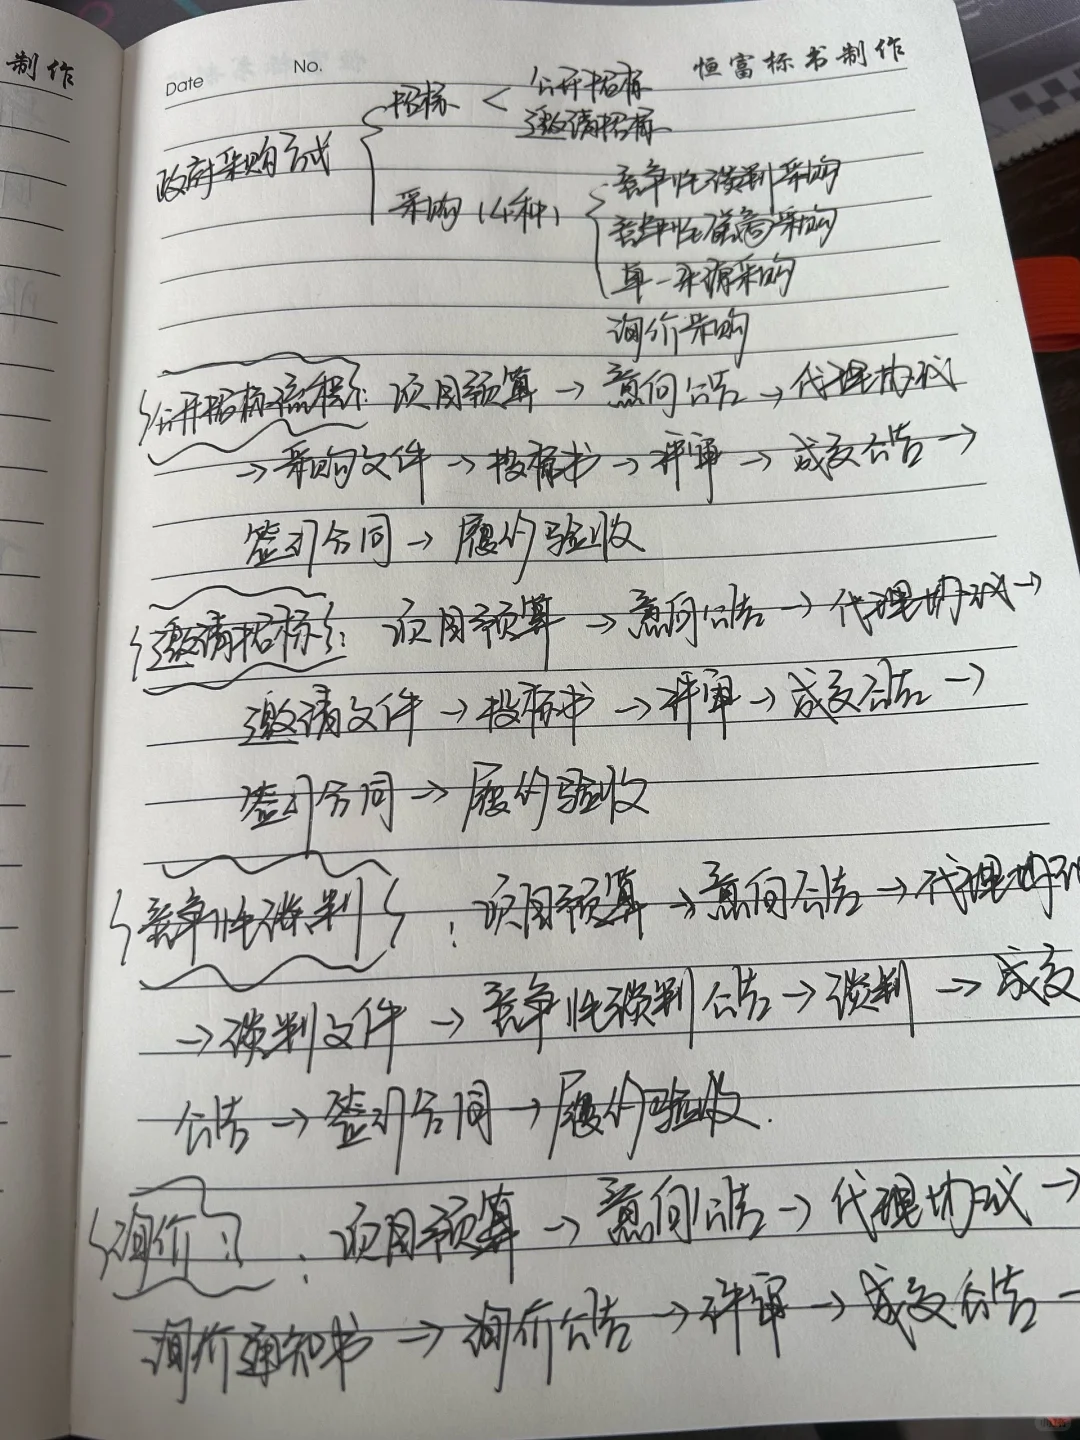 制作
Date No. 恒富标书制作
政府采购方式
招标 < 公开招标
邀请招标
采购（4种）
竞争性谈判采购
竞争性磋商采购
单一来源采购
询价采购
公开招标流程：项目预算→意向公告→代理协议
→采购文件→投标书→评审→成交公告→
签订合同→履约验收
邀请招标：项目预算→意向公告→代理协议→
邀请文件→投标书→评审→成交公告→
签订合同→履约验收
竞争性谈判：项目预算→意向公告→代理协议
→谈判文件→竞争性谈判公告→谈判→成交
公告→签订合同→履约验收.
询价：项目预算→意向公告→代理协议→
询价通知书→询价公告→评审→成交公告→